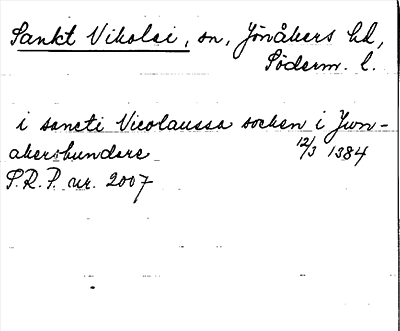 Sankt Nikolai, sn, Jönåkers hd,
Söderm. l.
i sancti Nicolaussa socken i Jwn-
akershundare 12/3 1384
S.R.P. nr. 2007